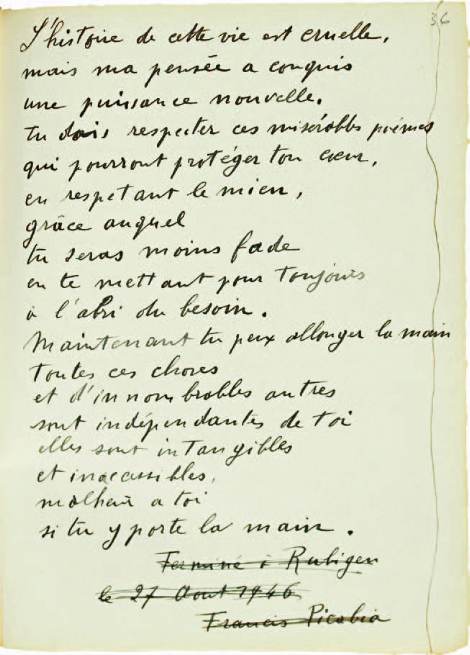 36
L'histoire de cette vie est cruelle,
mais ma pensée a conquis
une puissance nouvelle.
tu dois respecter ces misérables poèmes
qui pourront protéger ton cœur,
en respetant le mien,
grâce auquel
tu seras moins fade
en te mettant pour toujours
à l'abri du besoin.
Maintenant tu peux allonger la main
toutes ces choses
et d'innombrables autres
sont indépendantes de toi
elles sont intangibles
et inacessibles,
malheur a toi
si tu y porte la main.
Terminé à Rubigen
le 27 Aout 1946
Francis Picabia